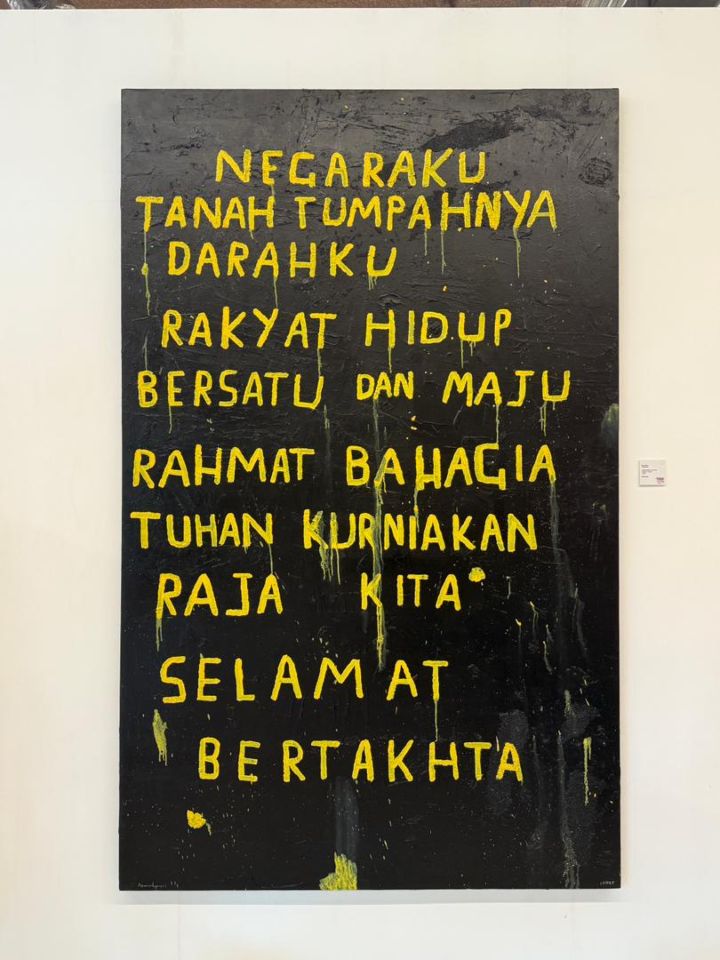 NEGARAKU
TANAH TUMPAHNYA
DARAHKU
RAKYAT HIDUP
BERSATU DAN MAJU
RAHMAT BAHAGIA
TUHAN KURNIAKAN
RAJA KITA
SELAMAT
BERTAKHTA